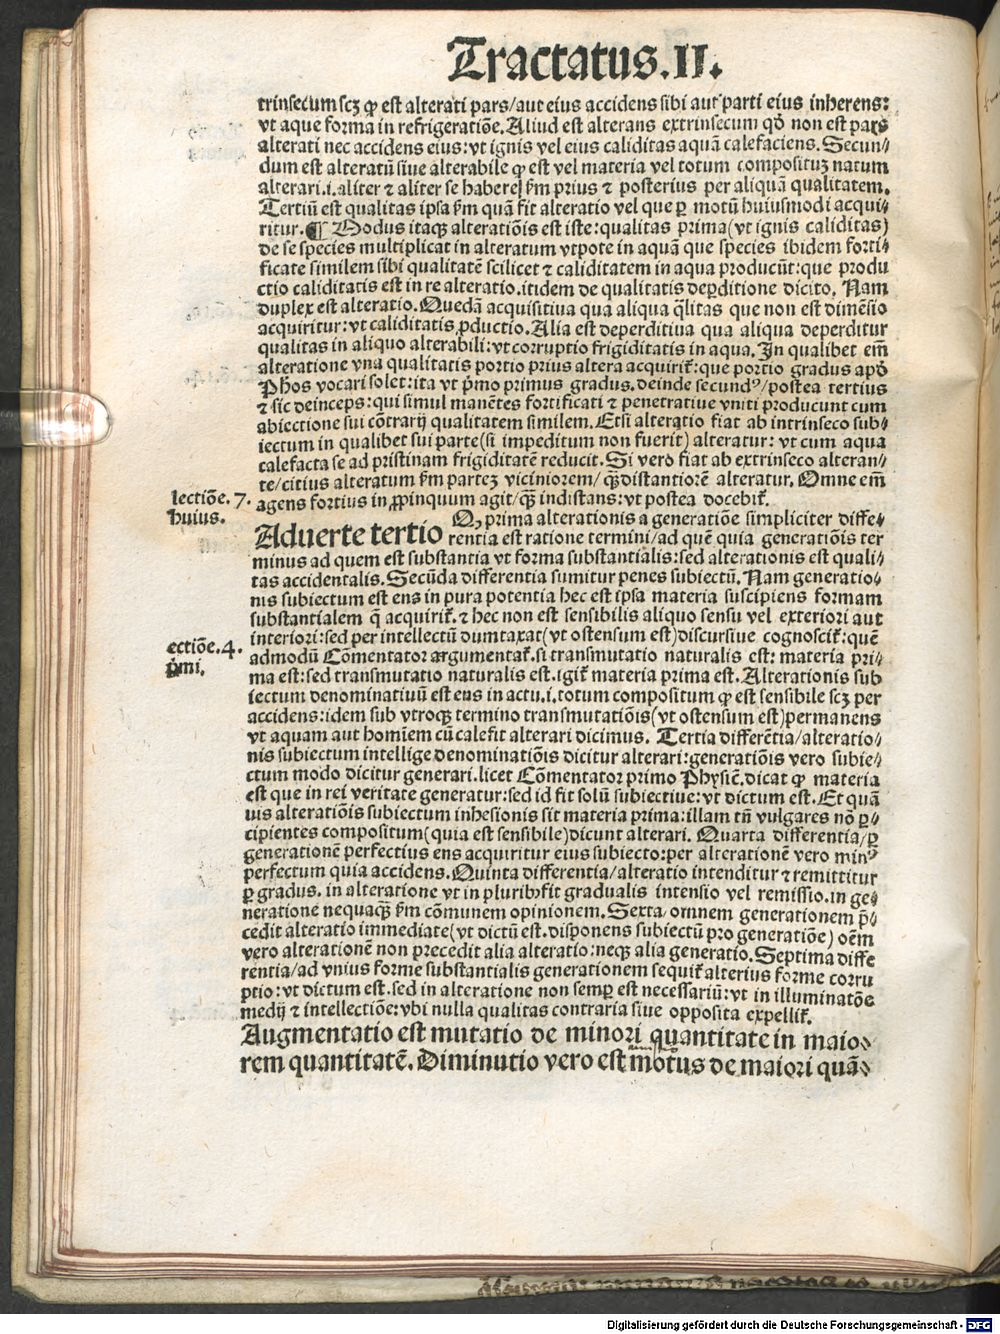 Tractatus.II.
trinsecum scꝫ ꝙ est alterati pars/aut eius accidens sibi aut parti eius inherens:
vt aque forma in refrigeratiōe. Aliud est alterans extrinsecum qd̕ non est pars
alterati nec accidens eius: vt ignis vel eius caliditas aquā calefaciens. Secun⸗
dum est alteratū siue alterabile ꝙ est vel materia vel totum composituꝫ natum
alterari.i.aliter ⁊ aliter se habere ẜm prius ⁊ posterius per aliquā qualitatem.
Tertiū est qualitas ipsa ẜm quā fit alteratio vel que ꝑ motū huiusmodi acqui⸗
ritur. ¶ Modus itaqꝫ alteratiōis est iste: qualitas prima(vt ignis caliditas)
de se species multiplicat in alteratum vtpote in aquā que species ibidem forti⸗
ficate similem sibi qualitatē scilicet ⁊ caliditatem in aqua producūt: que produ
ctio caliditatis est in re alteratio. itidem de qualitatis deꝑditione dicito. Nam
duplex est alteratio. Quedā acquisitiua qua aliqua q̄litas que non est dimēsio
acquiritur: vt caliditatis ꝓductio. Alia est deperditiua qua aliqua deperditur
qualitas in aliquo alterabili: vt corruptio frigiditatis in aqua. In qualibet em̄
alteratione vna qualitatis portio prius altera acquirit᷑: que portio gradus apd̕
Phos vocari solet: ita vt p̄mo primus gradus. deinde secundꝰ/postea tertius
⁊ sic deinceps: qui simul manētes fortificati ⁊ penetratiue vniti producunt cum
abiectione sui cōtrarij qualitatem similem. Etsi alteratio fiat ab intrinseco sub⸗
iectum in qualibet sui parte(si impeditum non fuerit) alteratur: vt cum aqua
calefacta se ad pristinam frigiditatē reducit. Si vero fiat ab extrinseco alteran⸗
te/citius alteratum ẜm parteꝫ viciniorem/ꝙ̄ distantiorē alteratur. Omne em̄
lectiōe.7.
huius.
agens fortius in ꝓpinquum agit/ꝙ̄ in distans: vt postea docebit᷑.
Aduerte tertio Ꝙ prima alterationis a generatiōe simpliciter diffe⸗
rentia est ratione termini/ad quē quia generatiōis ter
minus ad quem est substantia vt forma substantialis: sed alterationis est quali⸗
tas accidentalis. Secūda differentia sumitur penes subiectū. Nam generatio⸗
nis subiectum est ens in pura potentia hec est ipsa materia suscipiens formam
substantialem q̄ acquirit᷑. ⁊ hec non est sensibilis aliquo sensu vel exteriori aut
interiori: sed per intellectū dumtaxat(vt ostensum est)discursiue cognoscit᷑: quē
ectiōe.4.
p̄mi.
admodū Cōmentator argumentat᷑. si transmutatio naturalis est: materia pri⸗
ma est: sed transmutatio naturalis est. igit᷑ materia prima est. Alterationis sub
iectum denominatiuū est ens in actu.i.totum compositum ꝙ est sensibile scꝫ per
accidens: idem sub vtroqꝫ termino transmutatiōis(vt ostensum est)permanens
vt aquam aut homīem cū calefit alterari dicimus. Tertia differētia/alteratio⸗
nis subiectum intellige denominatiōis dicitur alterari: generatiōis vero subie⸗
ctum modo dicitur generari. licet Cōmentator primo Physicꝝ. dicat ꝙ materia
est que in rei veritate generatur: sed id fit solū subiectiue: vt dictum est. Et quā
uis alteratiōis subiectum inhesionis sit materia prima: illam tn̄ vulgares nō ꝑ⸗
cipientes compositum(quia est sensibile)dicunt alterari. Quarta differentia/ꝑ
generationē perfectius ens acquiritur eius subiecto: per alterationē vero minꝰ
perfectum quia accidens. Quinta differentia/alteratio intenditur ⁊ remittitur
ꝑ gradus. in alteratione vt in pluribꝫ fit gradualis intensio vel remissio. in ge⸗
neratione nequaqꝫ̄ ẜm cōmunem opinionem. Sexta/omnem generationem p̄⸗
cedit alteratio immediate(vt dictū est. disponens subiectū pro generatiōe) oēm
vero alterationē non precedit alia alteratio: neqꝫ alia generatio. Septima diffe
rentia/ad vnius forme substantialis generationem sequit᷑ alterius forme corru
ptio: vt dictum est. sed in alteratione non semꝑ est necessariū: vt in illuminatōe
medij ⁊ intellectiōe: vbi nulla qualitas contraria siue opposita expellit᷑.
Augmentatio est mutatio de minori quantitate in maio⸗
rem quantitatē. Diminutio vero est motus de maiori quā⸗
Digitalisierung gefördert durch die Deutsche Forschungsgemeinschaft - DFG